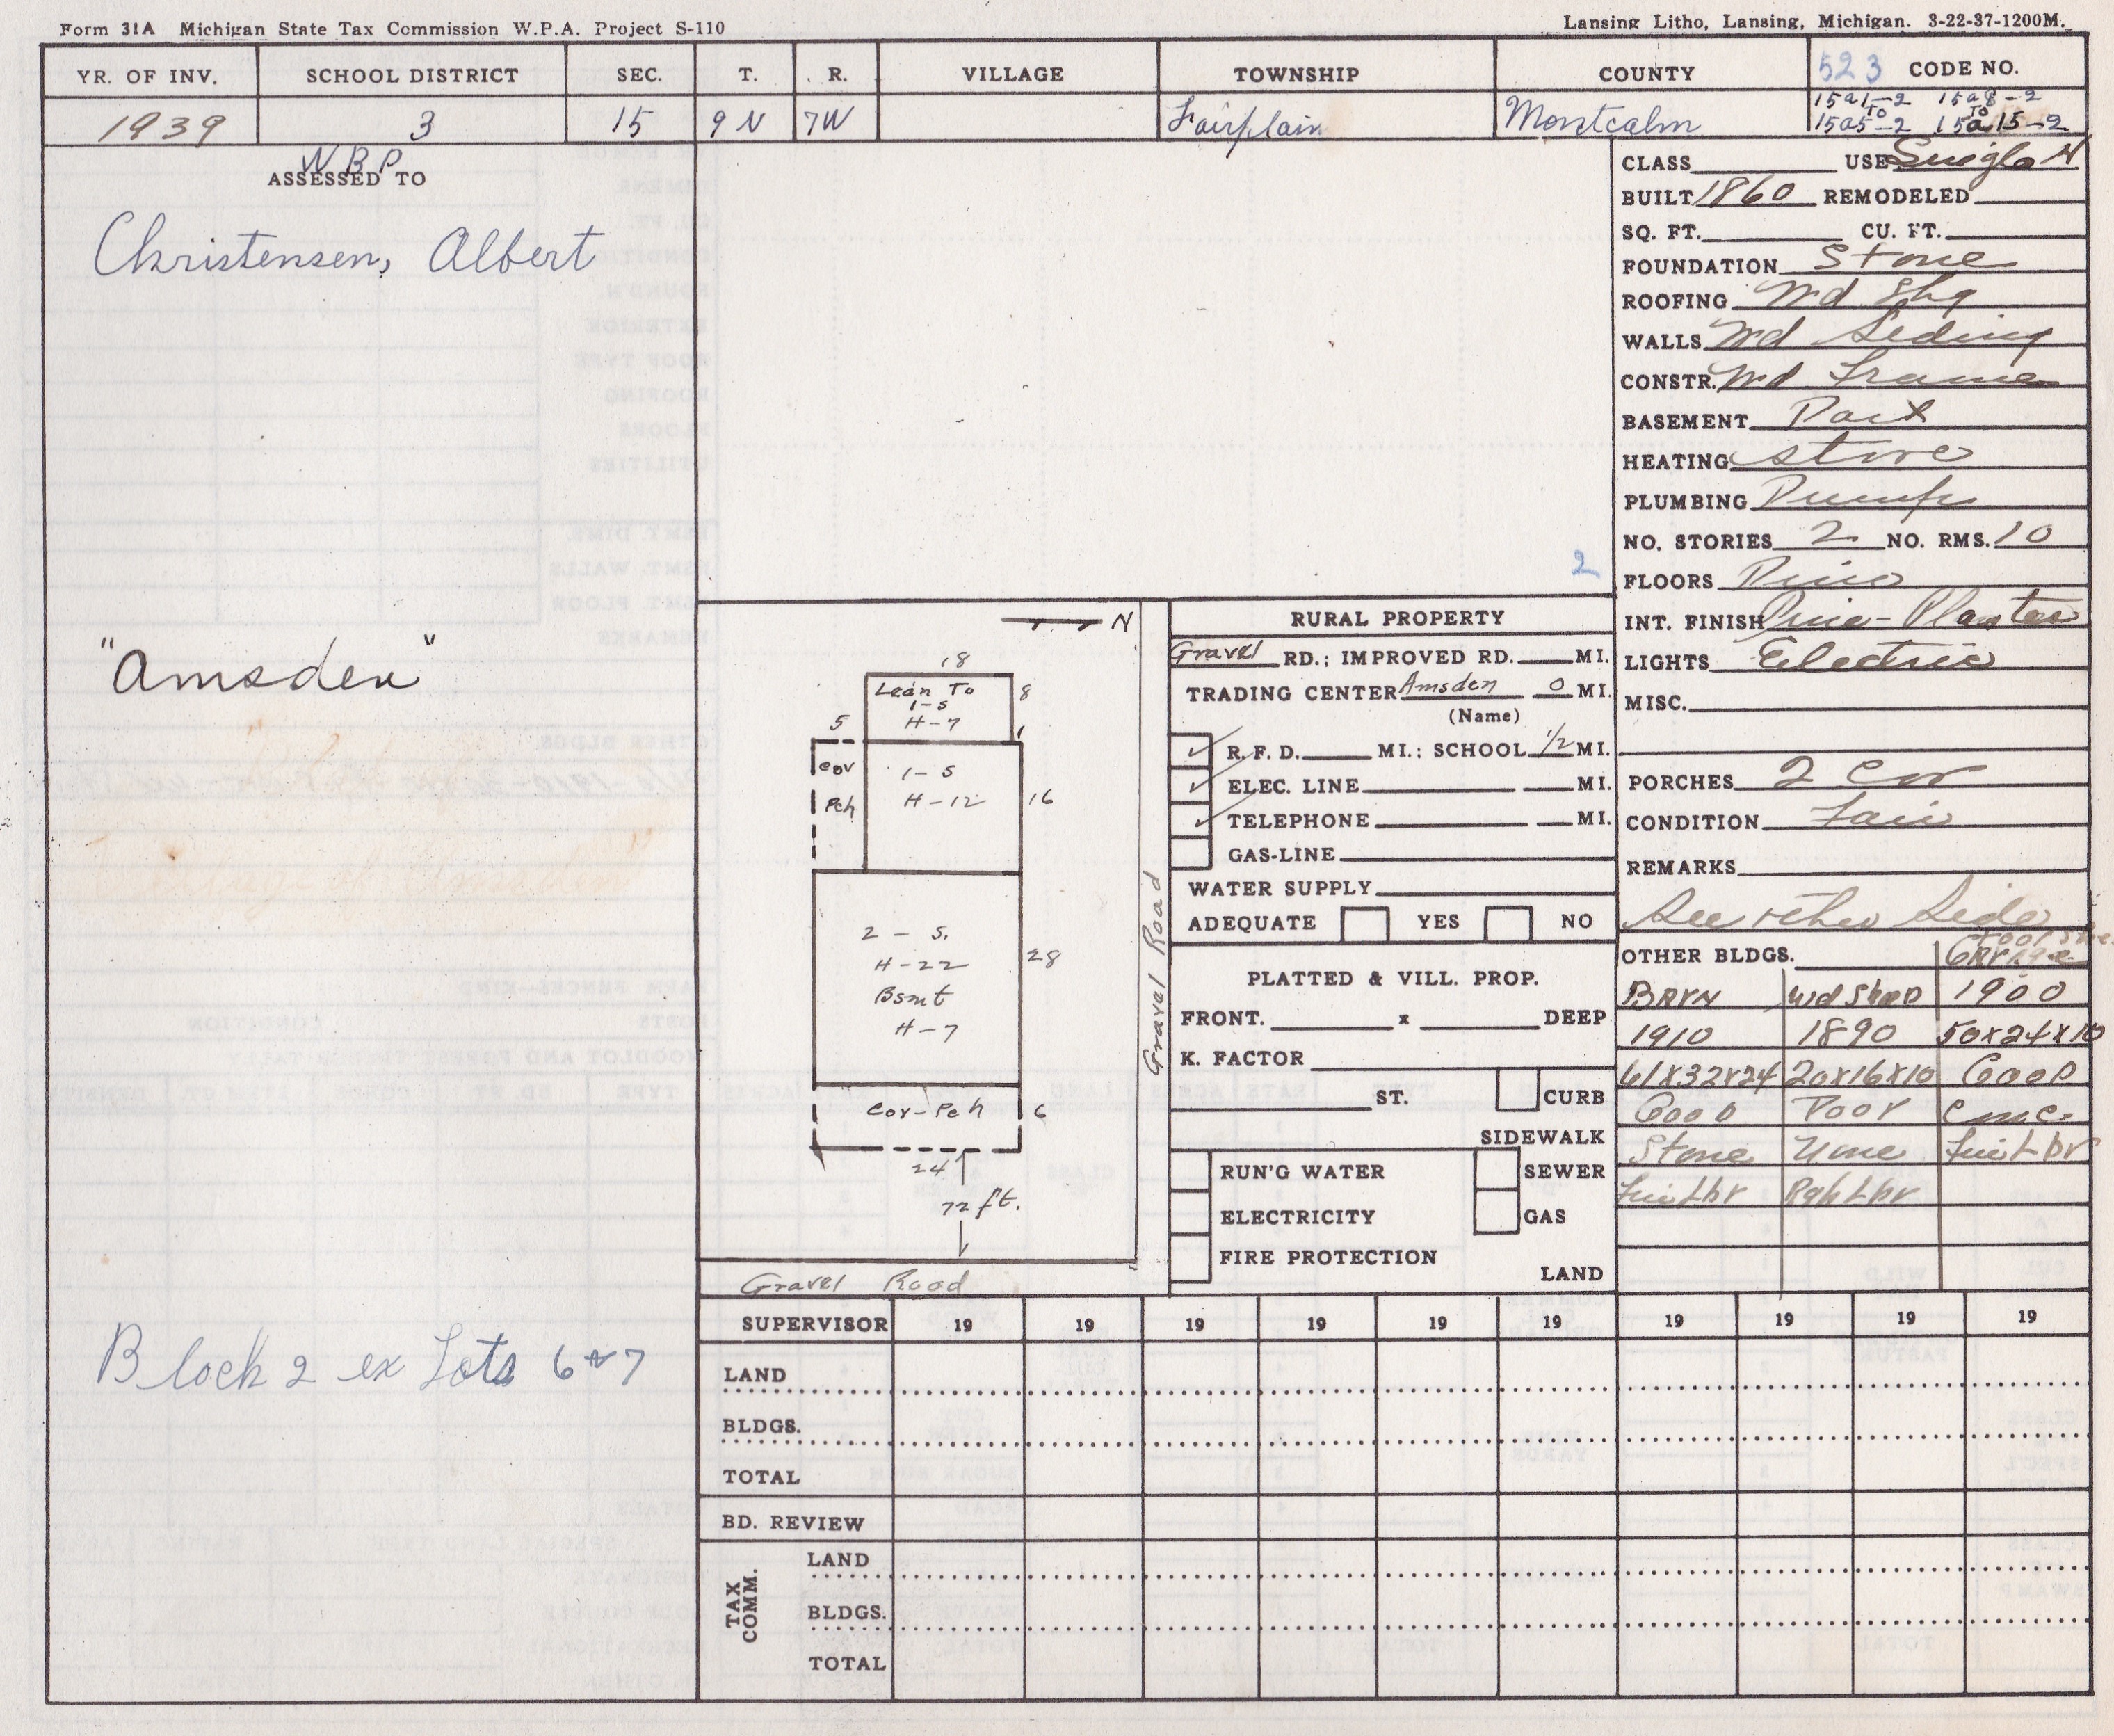 Form 31A Michigan State Tax Commission W.P.A. Project S-110
Lansing Litho, Lansing, Michigan. 3-22-37-1200M.
YR. OF INV. SCHOOL DISTRICT SEC. T. R. VILLAGE TOWNSHIP COUNTY 523 CODE NO.
1939 3 15 9 N 7W Fairplain Montcalm
15a1-2 15a8-2
TO TO
15a5-2 15a15-2
W B P
ASSESSED TO
Christensen, Albert
"Amsden"
Block 2 ex Lots 6 & 7
2
N
18
Lean To
1-S
H-7
8
5
1
Cov
Pch
1-S
H-12
16
2 - S.
H-22
Bsmt
H-7
28
Cov-Pch
6
24
72 ft.
Gravel Road
Gravel Road
RURAL PROPERTY
Gravel RD.; IMPROVED RD. MI.
TRADING CENTER Amsden 0 MI.
(Name)
R.F.D. MI.; SCHOOL 1/2 MI.
ELEC. LINE MI.
TELEPHONE MI.
GAS-LINE
WATER SUPPLY
ADEQUATE YES NO
PLATTED & VILL. PROP.
FRONT. x DEEP
K. FACTOR
ST. CURB
SIDEWALK
RUN'G WATER SEWER
ELECTRICITY GAS
FIRE PROTECTION
LAND
CLASS USE Single H
BUILT 1860 REMODELED
SQ. FT. CU. FT.
FOUNDATION Stone
ROOFING Wd Shg
WALLS Wd Siding
CONSTR. Wd Frame
BASEMENT Part
HEATING Stove
PLUMBING Pump
NO. STORIES 2 NO. RMS. 10
FLOORS Pine
INT. FINISH Pine-Plaster
LIGHTS Electric
MISC.
PORCHES 2 Cov
CONDITION Fair
REMARKS
See other Side
OTHER BLDGS. Garage
Barn Wd Shed 1900
1910 1890 50x24x10
61x32x24 20x16x10 Good
Good Poor Cmc.
Stone None Fin Lbr
Fin Lbr Rgh Lbr
SUPERVISOR 19 19 19 19 19 19 19 19 19 19
LAND
BLDGS.
TOTAL
BD. REVIEW
TAX COMM.
LAND
BLDGS.
TOTAL